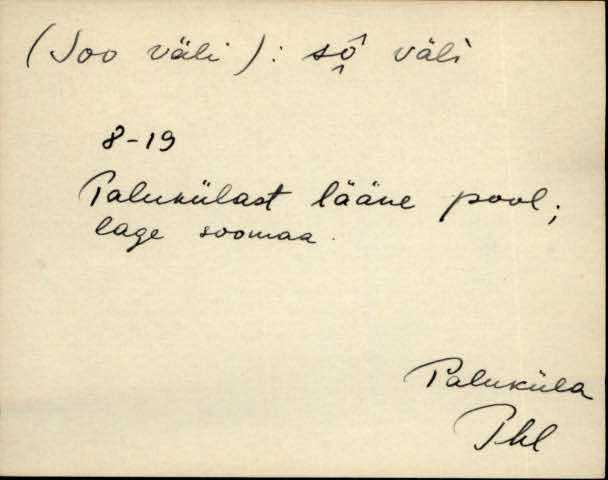 (Soo väli): sô̭ väli
8-19
Palukülast lääne pool;
lage soomaa.
Paluküla
Phl